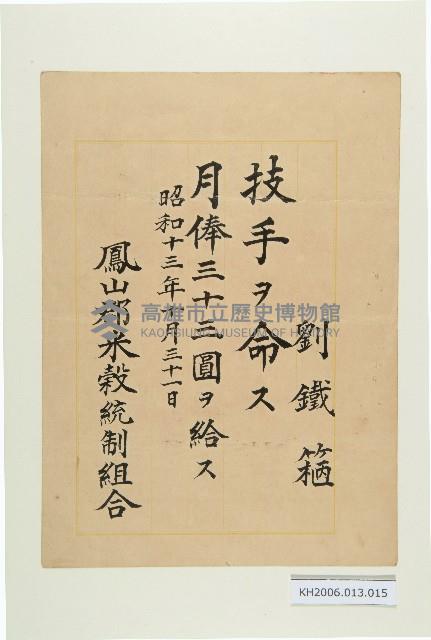 劉鐵𥱼
技手ヲ命ス
月俸三十三圓ヲ給ス
昭和十三年 月三十一日
鳳山郡米穀統制組合
高雄市立歷史博物館
KAOHSIUNG MUSEUM OF HISTORY
KH2006.013.015